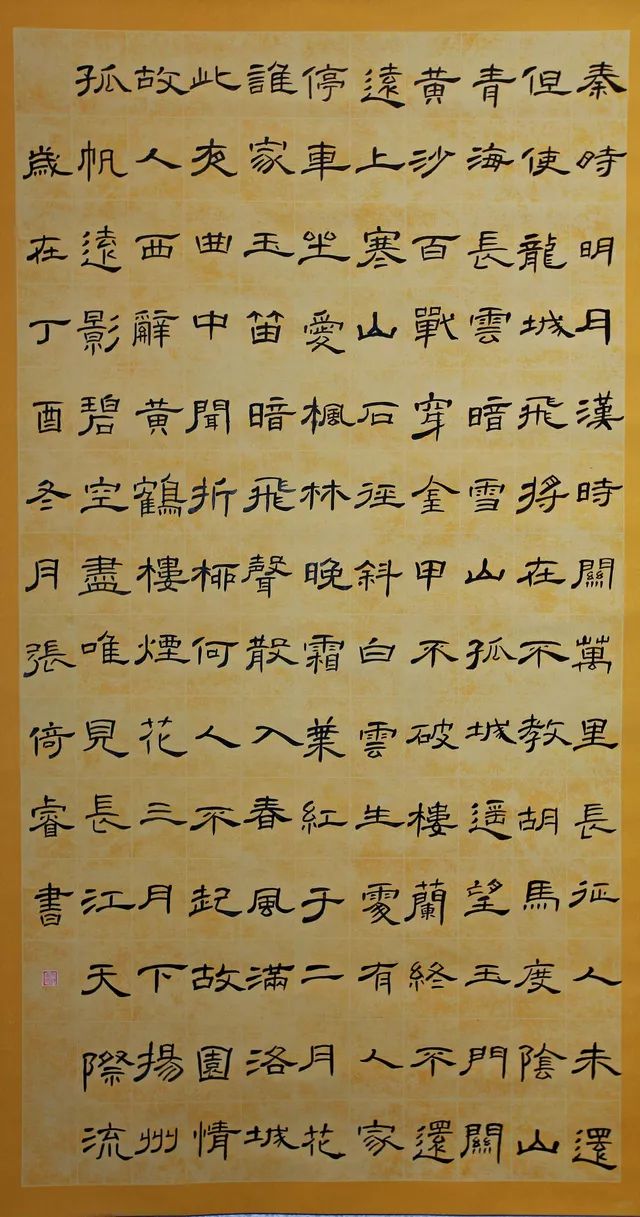 秦時明月漢時關萬里長征人未還
但使龍城飛將在不教胡馬度陰山
青海長雲暗雪山孤城遥望玉門關
黃沙百戰穿金甲不破樓蘭終不還
遠上寒山石徑斜白雲生處有人家
停車坐愛楓林晚霜葉紅于二月花
誰家玉笛暗飛聲散入春風滿洛城
此夜曲中聞折柳何人不起故園情
故人西辭黃鶴樓煙花三月下揚州
孤帆遠影碧空盡唯見長江天際流
歲在丁酉冬月張倚睿書